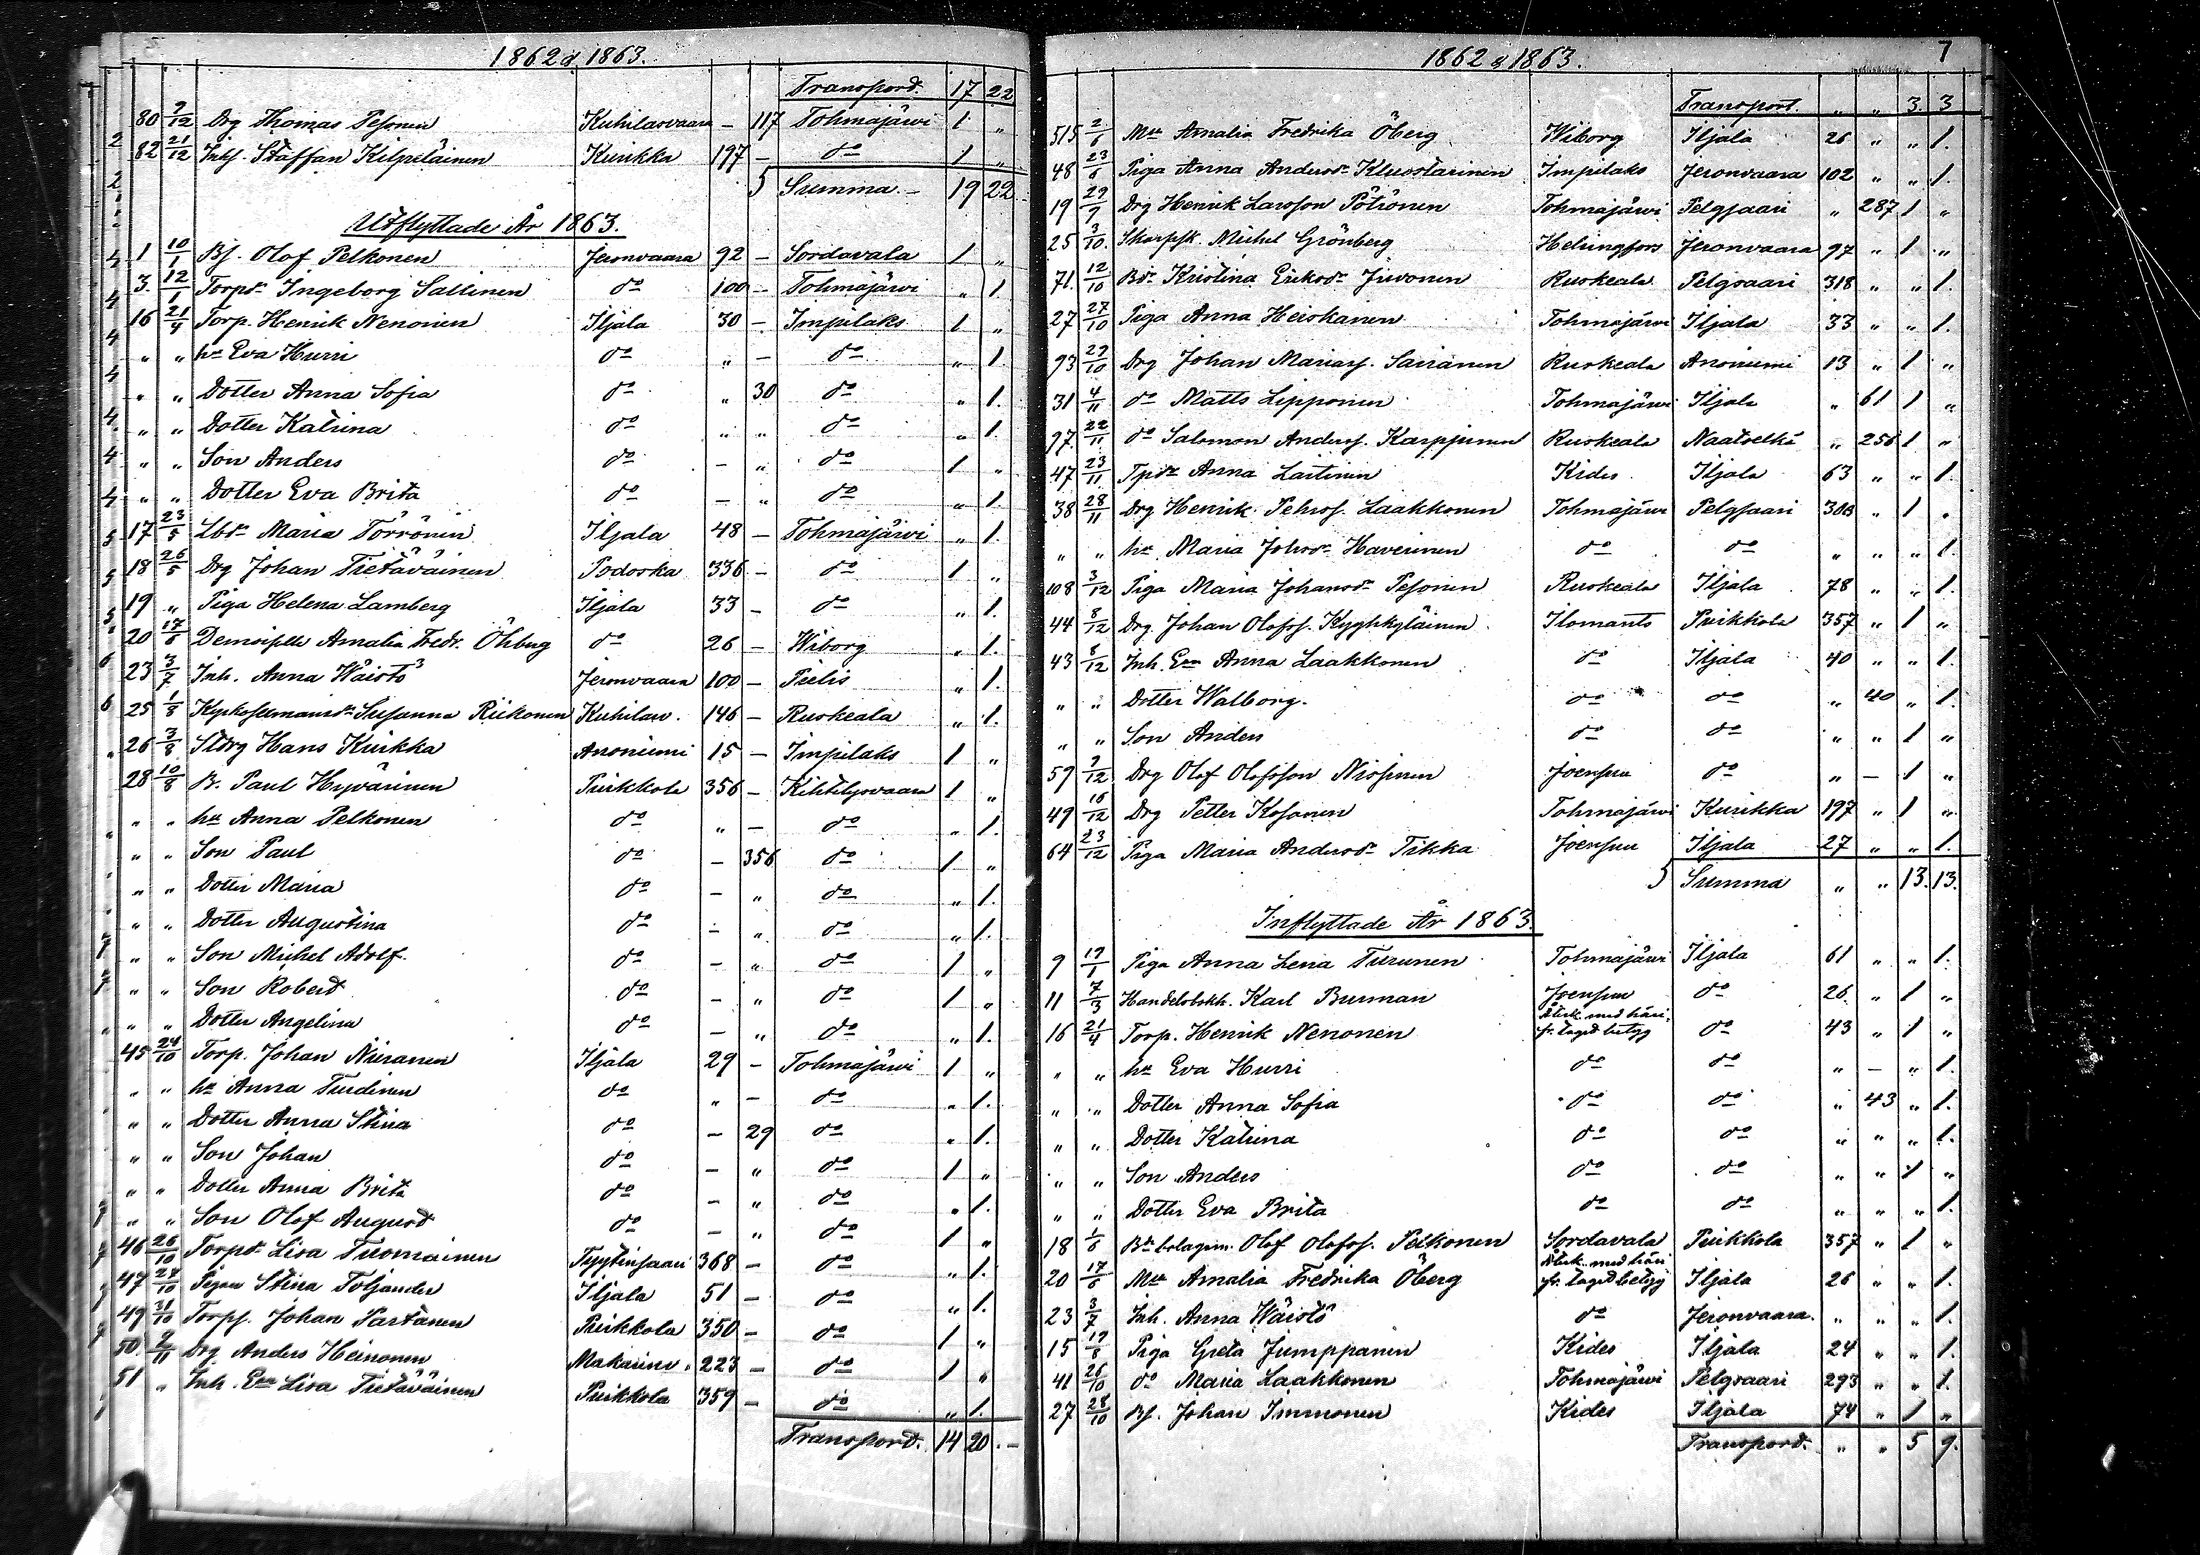 1862 & 1863.
Transport. 17 22
80 7/12 Drg Thomas Pesonen Kuhilasvaara – 117 Tohmajärvi 1 „
2 82 21/12 Inhs. Staffan Kilpeläinen Kurikka 197 – do 1 „
2 Summa – 19 22
Utflyttade År 1863.
4 1 10/1 Bs. Olof Pelkonen Jeronvaara 92 – Sordavala 1 „
3. 12/1 Torpdr Ingeborg Sallinen do 100 – Tohmajärvi „ 1.
4 16 21/4 Torp. Henrik Nenonen Iljala 30 – Impilaks 1 „
4 „ „ hu Eva Hurri do „ – do „ 1.
4 „ „ Dotter Anna Sofia do „ 30 do „ 1.
4 „ „ Dotter Katrina do „ „ do „ 1.
4 „ „ Son Anders do – „ do 1 „
4 „ „ Dotter Eva Brita do – „ do „ 1.
5 17 23/5 Lbdr Maria Törrönen Iljala 48 – Tohmajärvi „ 1.
5 18 26/5 Drg Johan Tietäväinen Podoska 336 – do 1 „
5 19 „ Piga Helena Lamberg Iljala 33 – do „ 1.
20 17/6 Demoiselle Amalia Fredr. Öhberg do 26 – Wiborg „ 1.
6 23 3/7 Inh. Anna Wäistö Jeronvaara 100 – Pielis „ 1.
6 25 1/8 Susanna Riikonen Kuhilasv. 146 – Ruskeala „ 1.
26 3/8 Sldrg Hans Kuikka Anoniemi 15 – Impilaks 1 „
28 10/8 B. Paul Hyvärinen Puikkola 356 – Kihtelysvaara 1 „
„ „ hu Anna Pelkonen do „ – do „ 1.
„ „ Son Paul do – 356 do 1 „
„ „ Dotter Maria do – „ do „ 1.
„ „ Dotter Augustina do – „ do „ 1.
7 „ „ Son Michel Adolf do – „ do 1 „
7 „ „ Son Robert do – „ do 1 „
„ „ Dotter Angelina do – „ do „ 1.
45 24/10 Torp. Johan Niiranen Iljala 29 – Tohmajärvi 1 „
„ „ hu Anna Turdinen do „ – do „ 1.
„ „ Dotter Anna Stina do – 29 do „ 1.
„ „ Son Johan do – „ do 1 „
„ „ Dotter Anna Brita do – „ do „ 1.
„ „ Son Olof August do – „ do 1 „
46 26/10 Torpdr Lisa Tuomainen 368 – do „ 1.
47 28/10 Pigan Stina Toljander Iljala 51 – do „ 1.
49 31/10 Torps. Johan Partanen Puikkola 350 – do 1 „
50. 2/11 Drg Anders Heinonen Makariev. 223 – do 1 „
51 „ Inh. Lisa Tietäväinen Puikkola 359 – do „ 1.
Transport. 14 20. –
1862 & 1863. 7
Transport. „ „ 3. 3
515 2/6 Mll Amalia Fredrika Öberg Wiborg Iljala 26 „ „ 1.
48 23/6 Piga Anna Andersdr Kluostarinen Impilaks Jeronvaara 102 „ „ 1.
19 29/9 Drg Henrik Larsson Pötrönen Tohmajärvi Pelgjaari „ 287 1 „
25 3/10 Skarpsk. Michel Grönberg Helsingfors Jeronvaara 97 „ 1 „
71. 12/10 Bdr Kristina Eriksdr Juvonen Ruskeala Pelgsaari 318 „ „ 1.
27 27/10 Piga Anna Heiskanen Tohmajärvi Iljala 33 „ „ 1.
93 29/10 Drg Johan Mariass. Sairanen Ruskeala Anoniemi 13 „ 1 „
31 4/11 do Matts Lipponen Tohmajärvi Iljala „ 61 1 „
97. 22/11 do Salomon Anderss. Karppinen Ruskeala Naatselkä „ 256 1 „
47 23/11 Tpdr Anna Laitinen Kides Iljala 63 „ „ 1.
38 28/11 Drg Henrik Pehrss. Laakkonen Tohmajärvi Pelgsaari „ 1 „
„ „ hu Maria Johsdr Haverinen do do „ „ „ 1.
108 3/12 Piga Maria Johansdr Pesonen Ruskeala Iljala 78 „ „ 1.
44 8/12 Drg Johan Olofss. Kyyhkyläinen Ilomants Puikkola 357 „ 1 „
43 8/12 Inh. Anna Laakkonen do Iljala 40 „ „ 1.
„ „ Dotter Walborg. do do „ 40 „ 1.
„ „ Son Anders do do „ „ 1 „
59 9/12 Drg Olof Olofsson Nissinen Joensuu do „ – 1 „
49 16/12 Drg Petter Kosonen Tohmajärvi Kurikka 197 „ 1 „
64 23/12 Piga Maria Andersdr Tikka Joensuu Iljala 27 „ „ 1.
Summa „ „ 13. 13.
Inflyttade År 1863.
9 19/1 Piga Anna Lena Turunen Tohmajärvi Iljala 61 „ „ 1.
11 7/3 Handelsbokh. Karl Burman Joensuu do 26 „ 1 „
16 21/4 Torp. Henrik Nenonen Återk. med häri- fr. taget betyg do 43 „ 1 „
„ „ hu Eva Hurri do do „ – „ 1.
„ „ Dotter Anna Sofia do do „ 43 „ 1.
„ „ Dotter Katrina do do „ „ „ 1.
„ „ Son Anders do do „ „ 1 „
„ „ Dotter Eva Brita do do „ „ „ 1.
18 1/6 Olof Olofss. Pelkonen Sordavala Puikkola 357 „ 1 „
20 17/6 Mll Amalia Fredrika Öberg Återk. med häri fr. taget betyg Iljala 26 „ „ 1.
23 3/7 Inh. Anna Wäistö do Jeronvaara. „ „ „ 1.
15 19/8 Piga Greta Jumppanen Kides Iljala 24 „ „ 1.
41 26/10 do Maria Laakkonen Tohmajärvi Pelgsaari 293 „ „ 1.
27 28/10 Bs. Johan Immonen Kides Iljala 74 „ 1 „
Transport. „ „ 5 9.